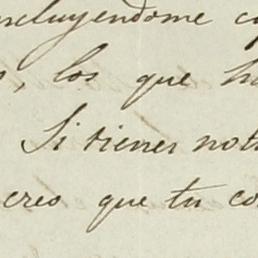 ncluyendome co
s, los que h
Si tienes not
creo que tu co